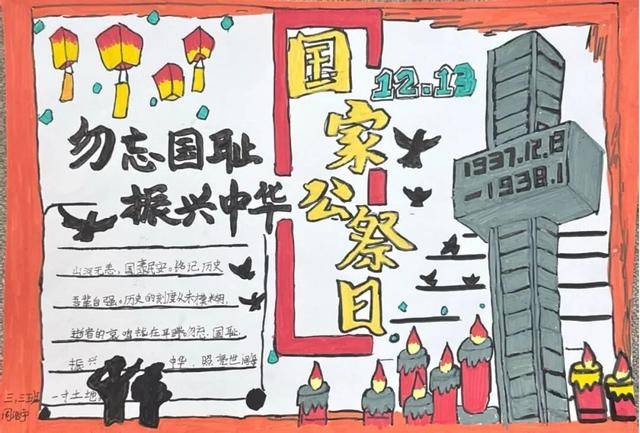 国家公祭日
12.13
勿忘国耻
振兴中华
1937.12.8
-1938.1
山河无恙，国泰民安。铭记历史
吾辈自强。历史的刻度从未模糊，
逝者的哀 在耳畔。勿忘国耻
振兴 中华，照亮世间每
一寸土地
三，三班